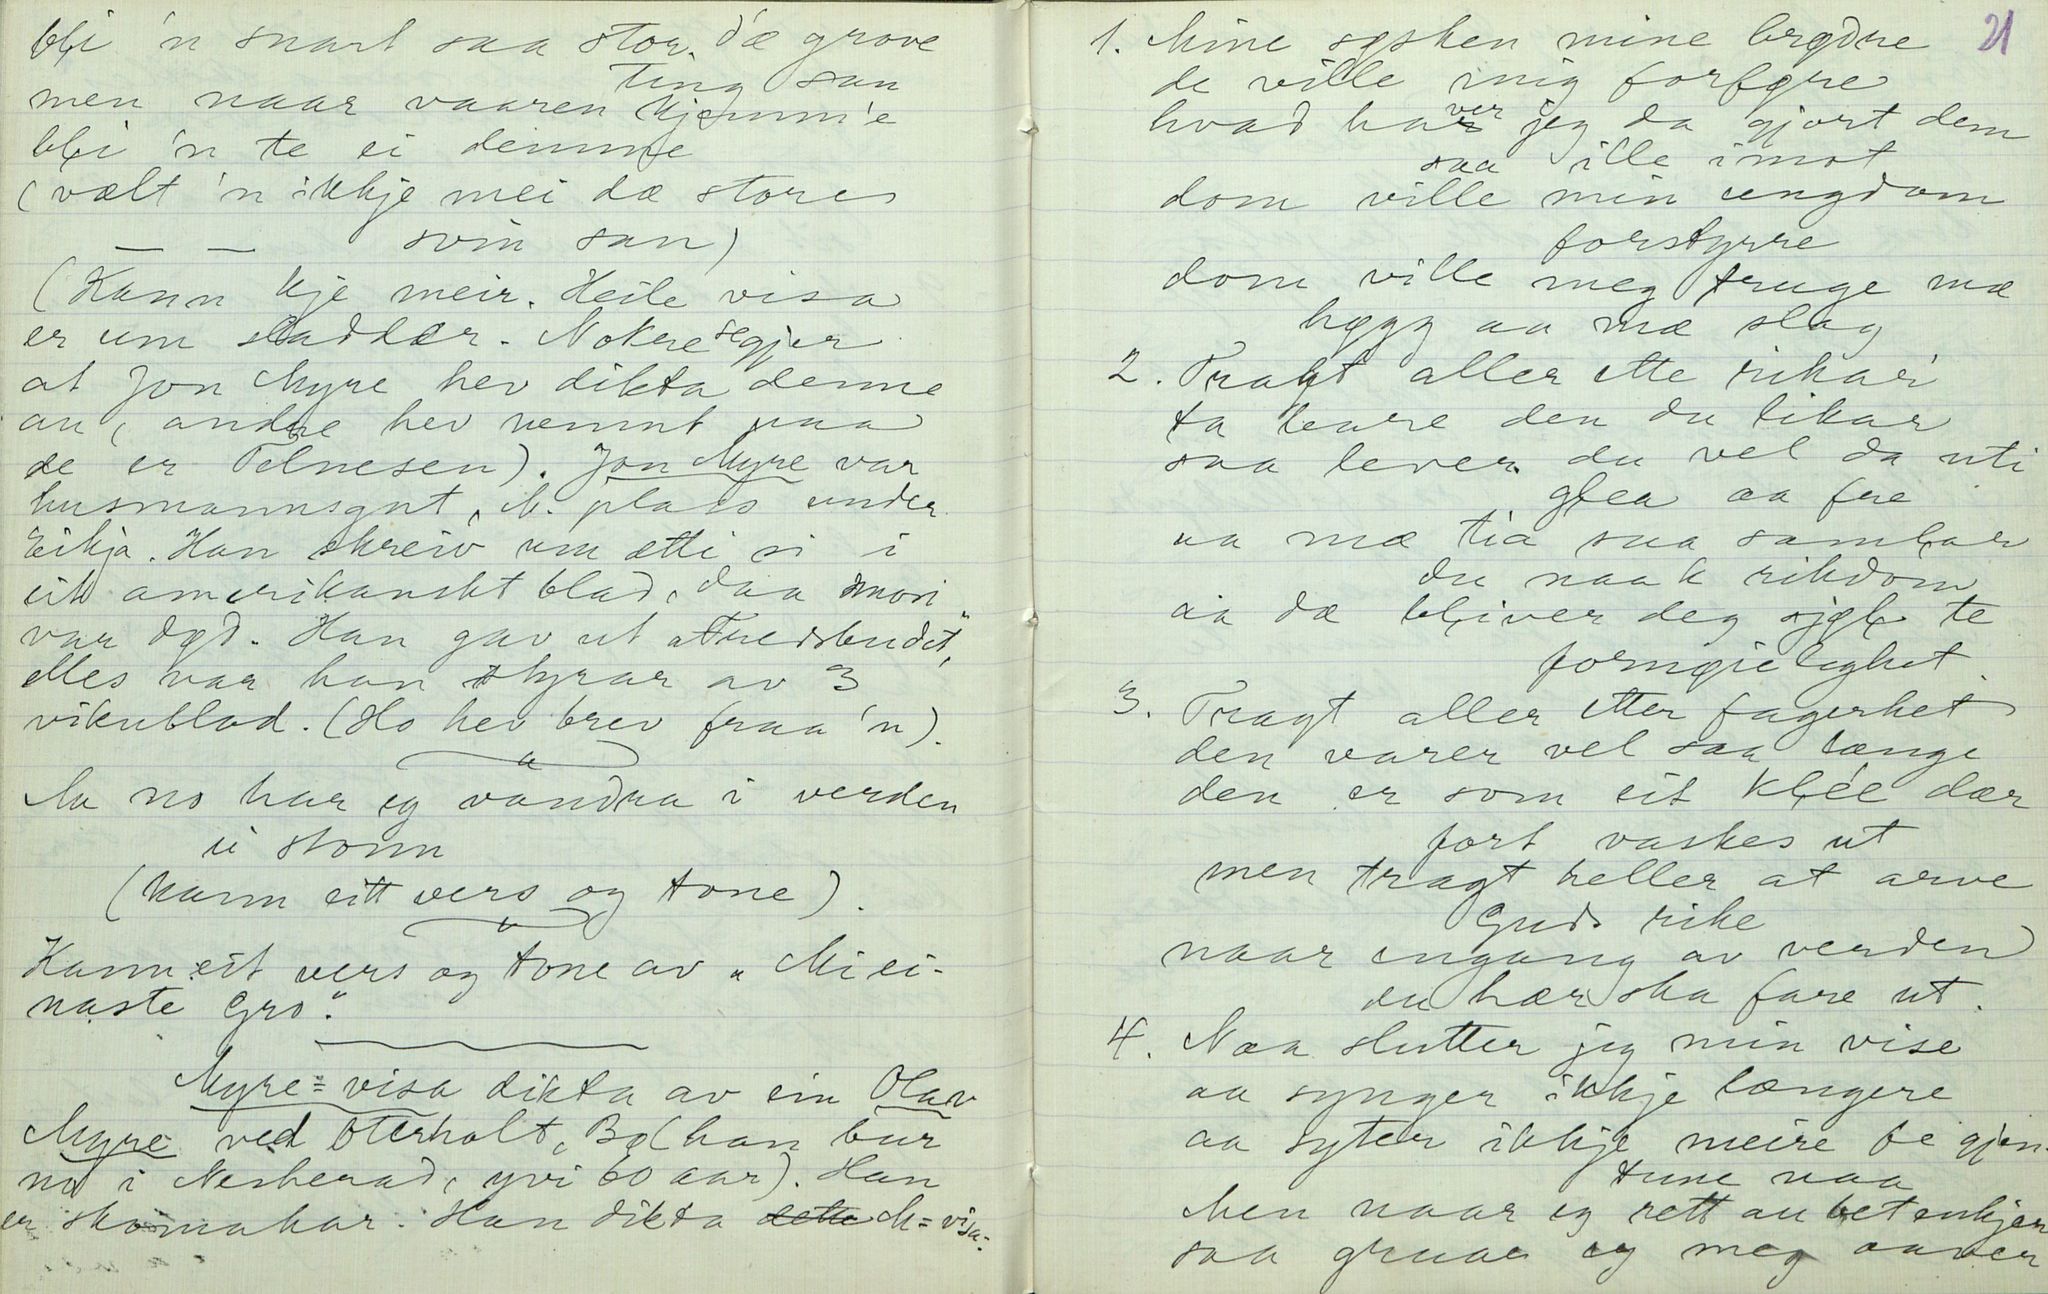 bli 'n snart saa stor. d'æ grove
ting san
men naar vaaren kjemm'e
bli 'n te ei demme
(vælt 'n ikkje mei dæ store
svin san)
— —
(Kann kje meir. Heile visa
er um stadlær. Nokre segjer
at Jon Myre hev dikta denne
au, andre hev nemnt paa
de er Telnesen). Jon Myre var
husmannsgut, M. plass under
Eikja. Han skreiv um ætti si i
eit amerikanskt blad, daa mori
var død. Han gav ut „Fredsbudet",
elles var han styrar av 3
vikublad. (Ho hev brev fraa 'n).
Aa no har eg vandra i verden
ei stonn
(kann eitt vers og tone).
Kann eit vers og tone av „Mi ei-
naste Gro".
Myre=visa dikta av ein Olav
Myre ved Oterholt, Bø (han bur
no i Nesherad, yvi 60 aar). Han
er skomakar. Han dikta dette M=visa:
21
1. Mine sysken mine brødre
de ville mig forføre
hvad haver jeg da gjort dem
saa ille imot
dom ville min ungdom
forstyrre
dom ville meg truge mæ
høgg aa mæ slag
2. Tragt aller ette rikar
ta heure den du likar
saa lever du vel da uti
glea aa fre
aa mæ tia saa samlar
du naak rikdom
aa dæ bliver deg sjøl te
fornøielighet
3. Tragt aller etter fagerhet
den varer vel saa længe
den er som eit klee dær
fort vaskes ut
men tragt heller at arve
Guds rike
naar engang av verden
du hær ska fare ut.
4. Naa slutter jeg min vise
aa synger ikkje længere
aa syter ikkje meire fe gjen-
tune naa
Men naar eg rett au betenkjer
saa gruar eg meg aaver